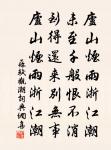 廬山煙雨浙江潮
未至千般恨不消
到得還來別無事
廬山煙雨浙江潮
蘇軾觀潮詞典網書